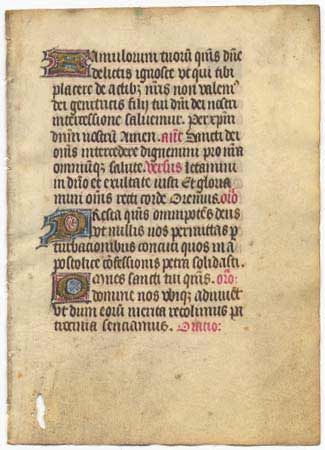 Famulorum tuorū qūs dñe
delictis ignosce vt qui tibi
placere de actibꝫ nr̄is non valemꝰ
dei genitricis filij tui dn̄i dei nostri
intercessione saluemur. Per xp̄m
dn̄m nostrū Amen. añt Sancti dei
om̄s intercedere dignemini pro nr̄a
omniūqꝫ salute. versus Letamini
in dn̄o et exultate iusti Et gloria
mini om̄s recti corde Oremus. oro
Presta qūs omnipotēs deus
vt nullis nos permittas p̱
turbationibus concuti quos in a
postolice cōfessionis petra solidasti.
Omnes sancti tui qūs. oro:
domine nos vbiqꝫ adiuuēt
vt dum eorū merita recolimus pa
trocinia senciamus. Oratio: